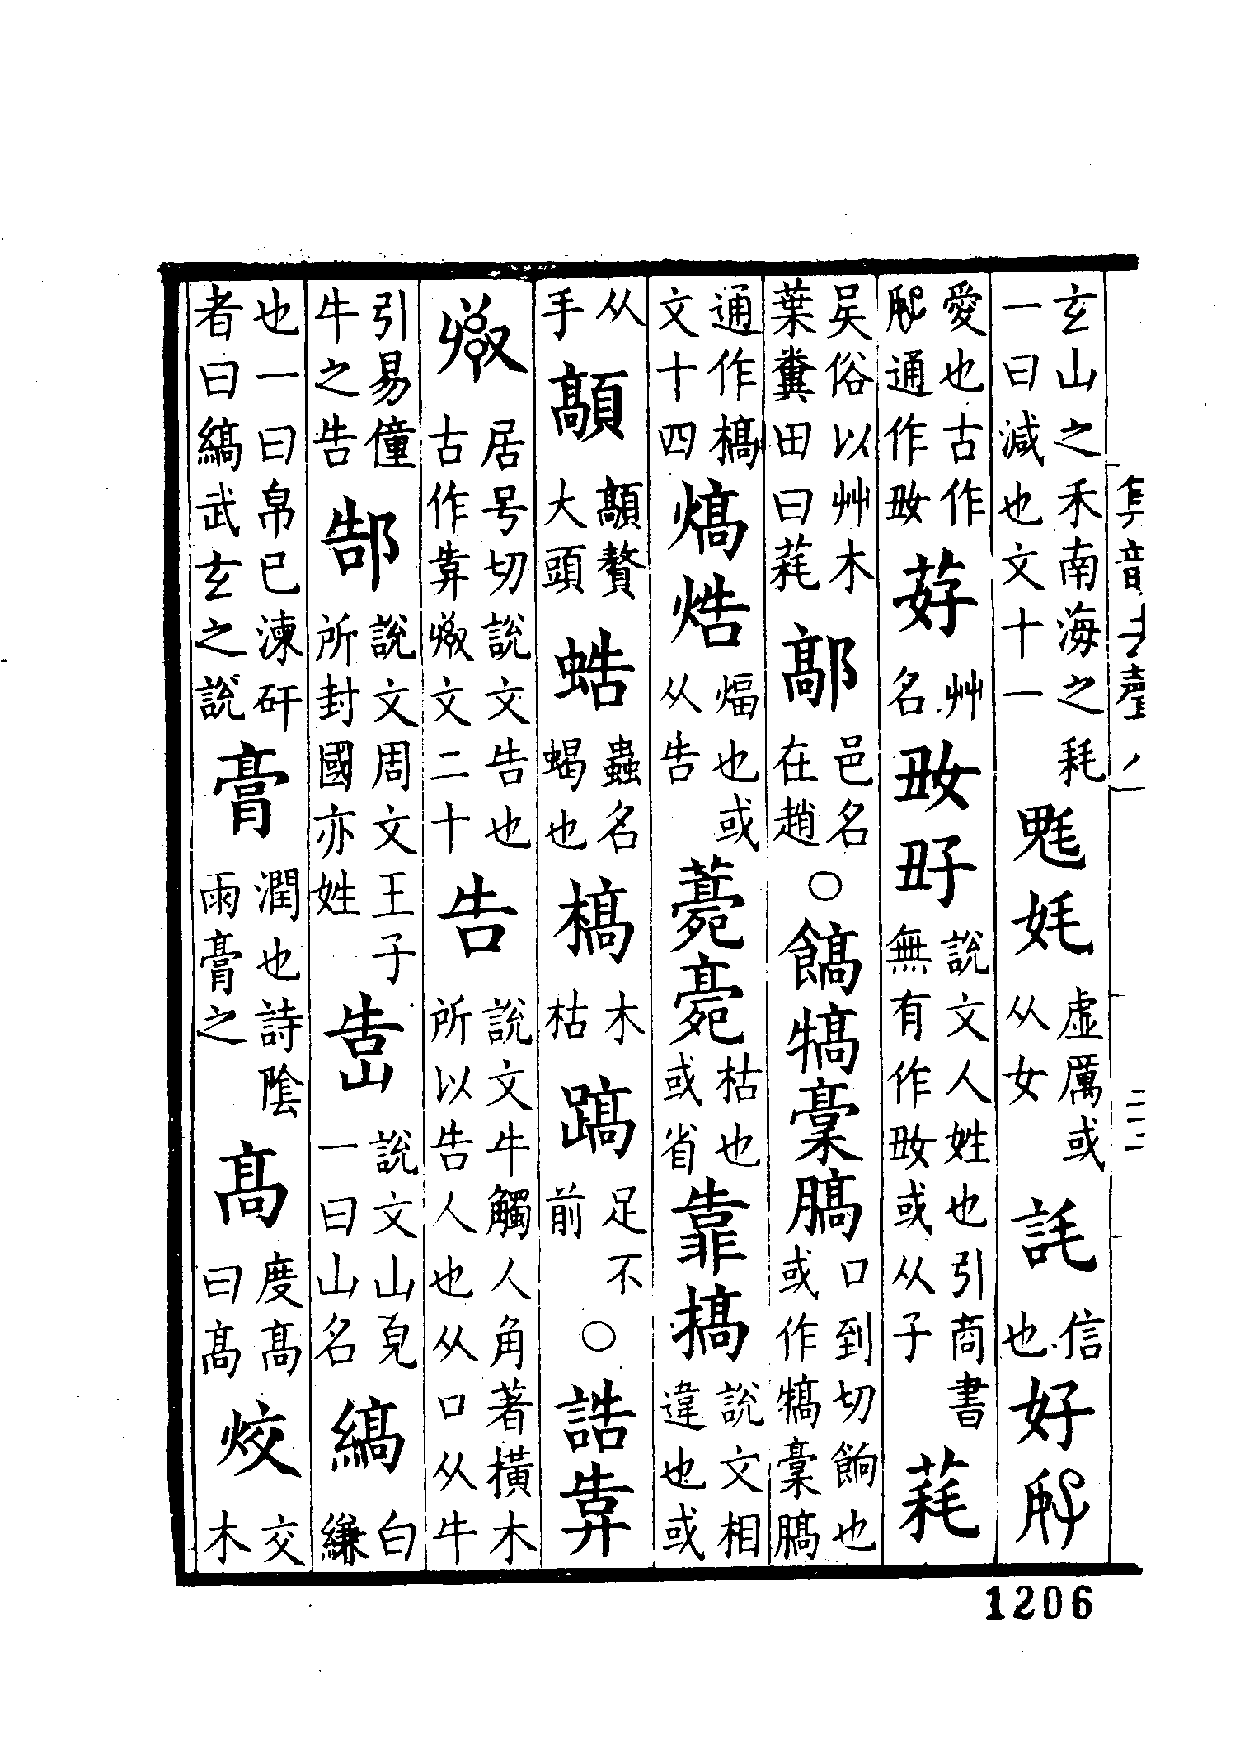 玄山之禾南海之耗一曰減也文十一虛厲或从女信也好
愛也古作通作𡚽艸名𡚽說文人姓也引商書無有作𡚽或从子
吳俗以艸木葉糞田曰鄗邑名在趙○犒稾口到切餉也或作犒稾
通作槁文十四熇焅煏也或从告薧枯也或省靠搞說文相違也或
从手大頭蟲名蝎也槁木枯足不前○誥𢍎
居号切說文告也古作𢍎文二十告說文牛觸人角著橫木所以告人也从口从牛
引易僮牛之告郜說文周文王子所封國亦姓峼說文山皃一曰山名縞白縑
也一曰帛已湅矸者曰縞武玄之說膏潤也詩陰雨膏之髙度髙曰髙烄交木
1206